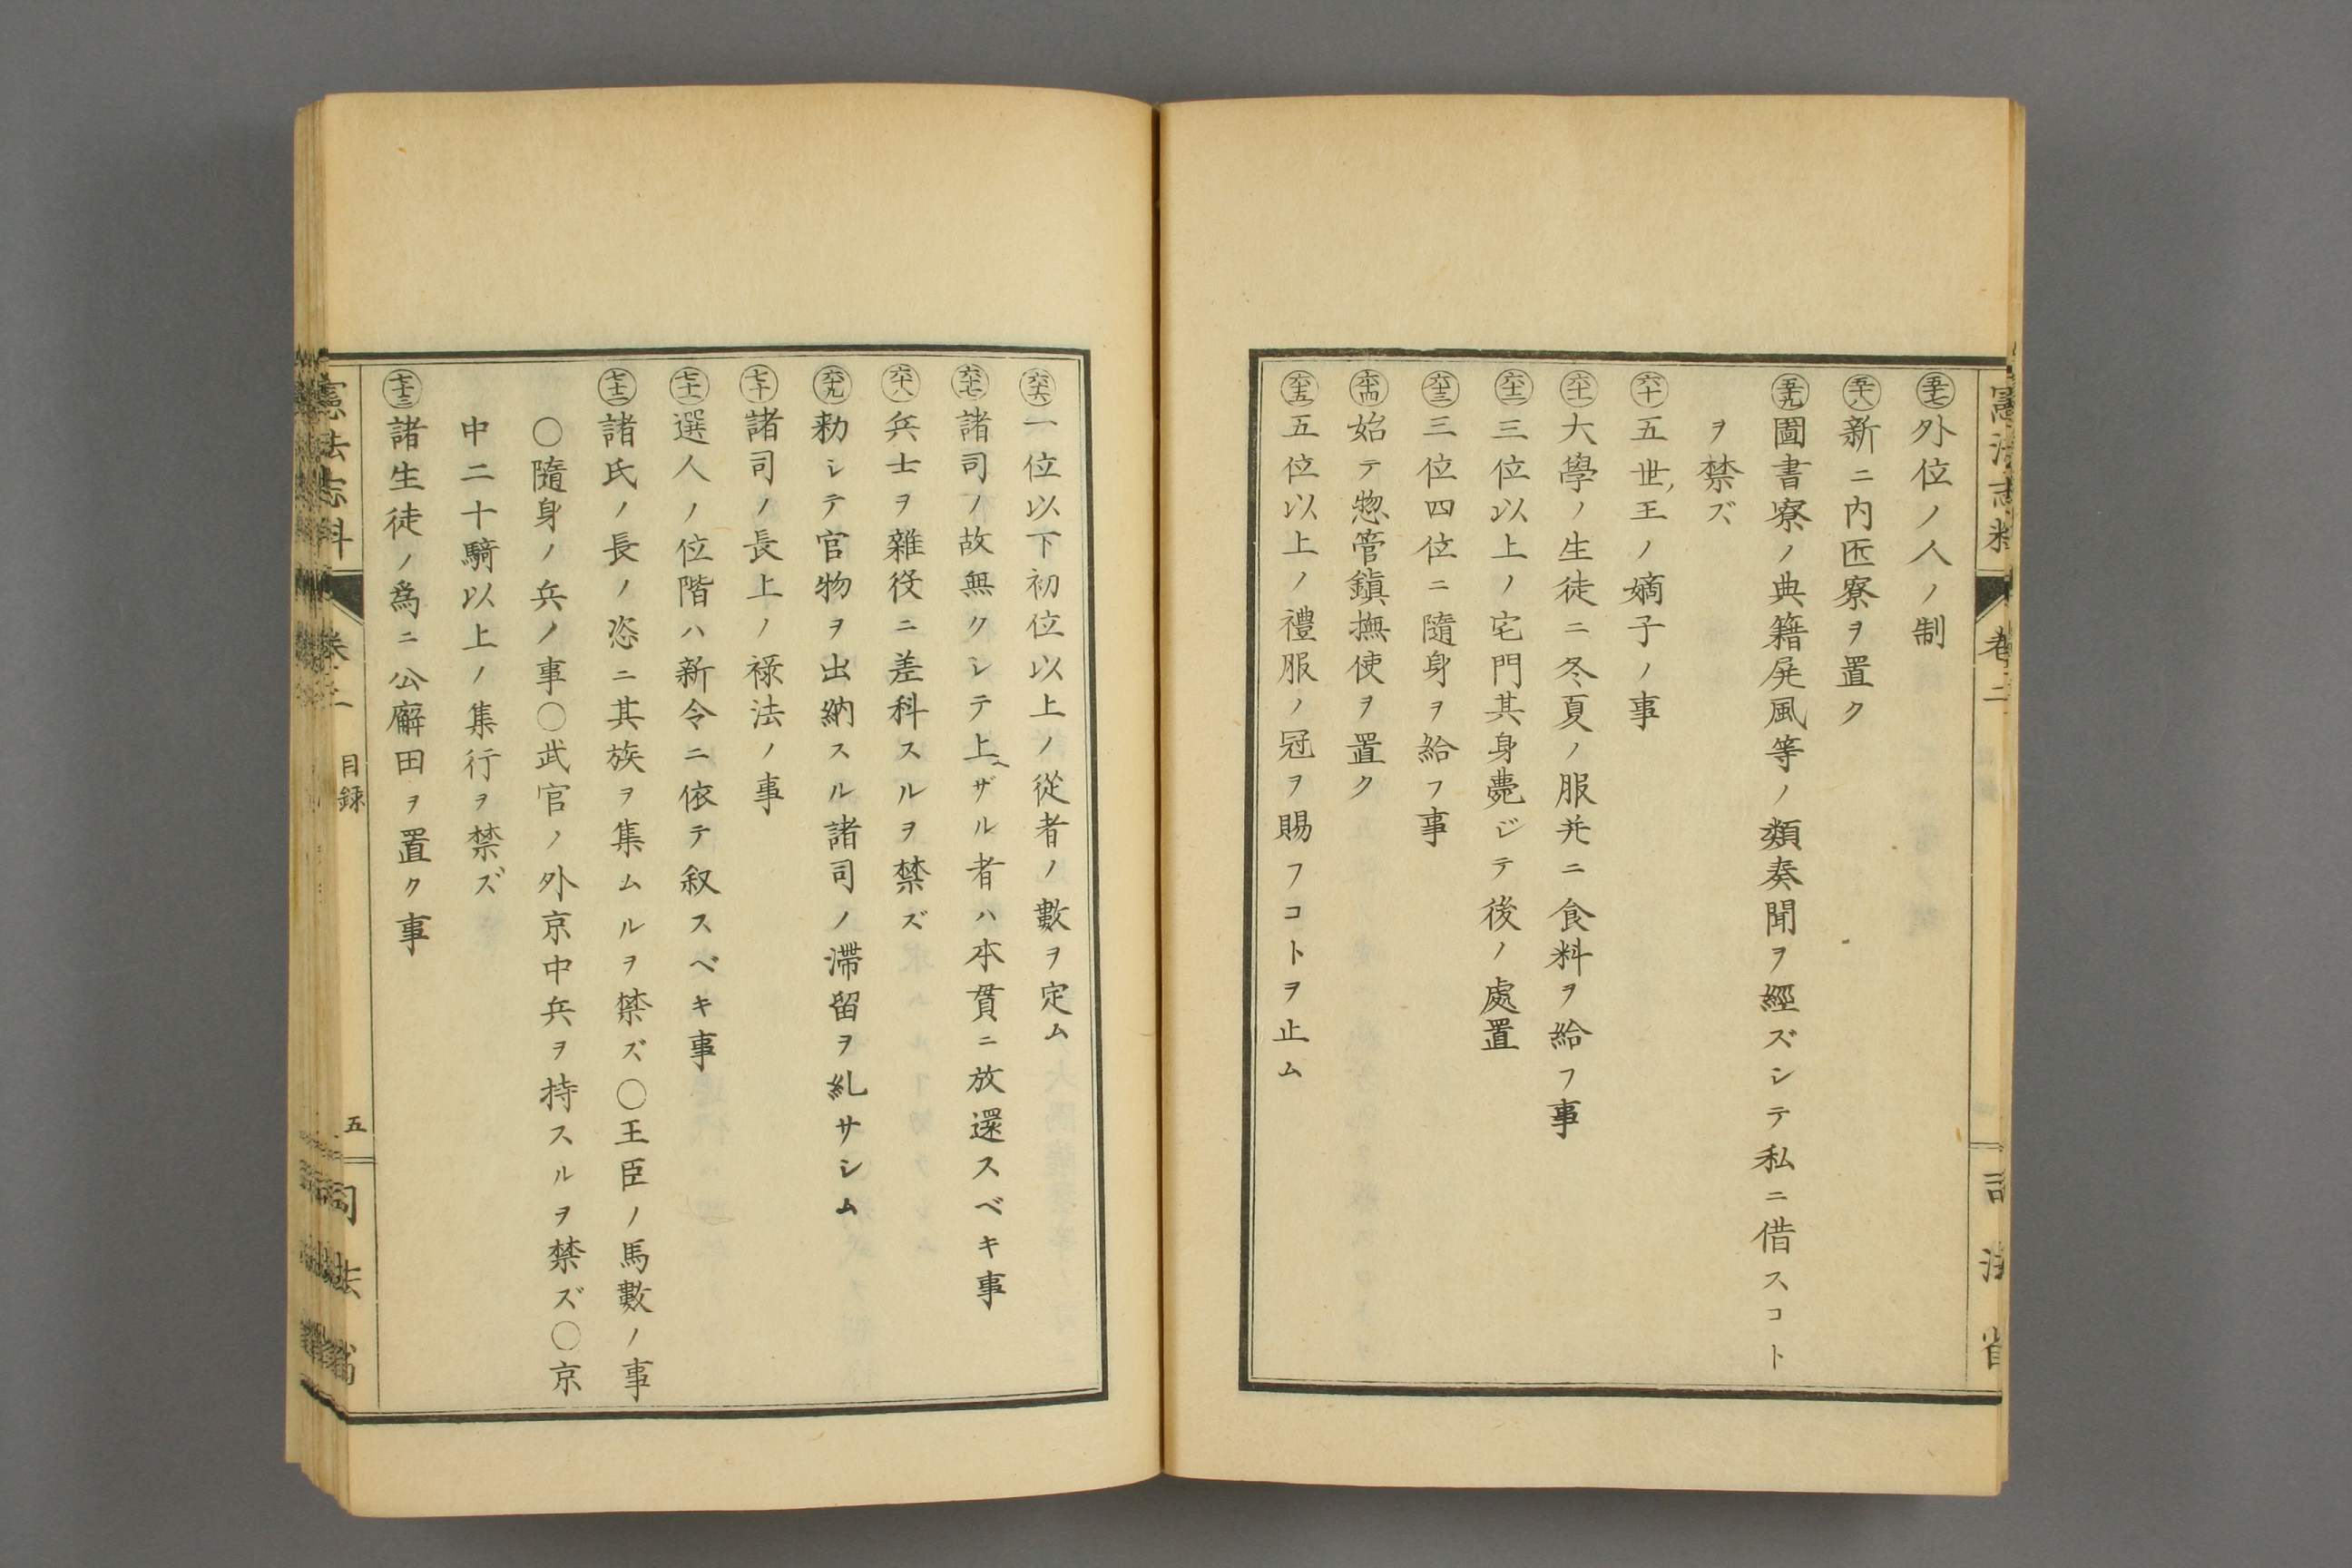 憲法志料 卷二 司法省
五十七 外位ノ人ノ制
五十八 新ニ内匠寮ヲ置ク
五十九 圖書寮ノ典籍屏風等ノ類奏聞ヲ經ズシテ私ニ借スコト
ヲ禁ズ
六十 五世王ノ嫡子ノ事
六十一 大學ノ生徒ニ冬夏ノ服幷ニ食料ヲ給フ事
六十二 三位以上ノ宅門其身薨ジテ後ノ處置
六十三 三位四位ニ隨身ヲ給フ事
六十四 始テ惣管鎭撫使ヲ置ク
六十五 五位以上ノ禮服ノ冠ヲ賜フコトヲ止ム
六十六 一位以下初位以上ノ從者ノ數ヲ定ム
六十七 諸司ノ故無クシテ上ヘザル者ハ本貫ニ放還スベキ事
六十八 兵士ヲ雜役ニ差科スルヲ禁ズ
六十九 勑シテ官物ヲ出納スル諸司ノ滯留ヲ糺サシム
七十 諸司ノ長上ノ祿法ノ事
七十一 選人ノ位階ハ新令ニ依テ叙スベキ事
七十二 諸氏ノ長ノ恣ニ其族ヲ集ムルヲ禁ズ〇王臣ノ馬數ノ事
〇隨身ノ兵ノ事〇武官ノ外京中兵ヲ持スルヲ禁ズ〇京
中二十騎以上ノ集行ヲ禁ズ
七十三 諸生徒ノ爲ニ公廨田ヲ置ク事
憲法志料 卷二 目録 五 司法省